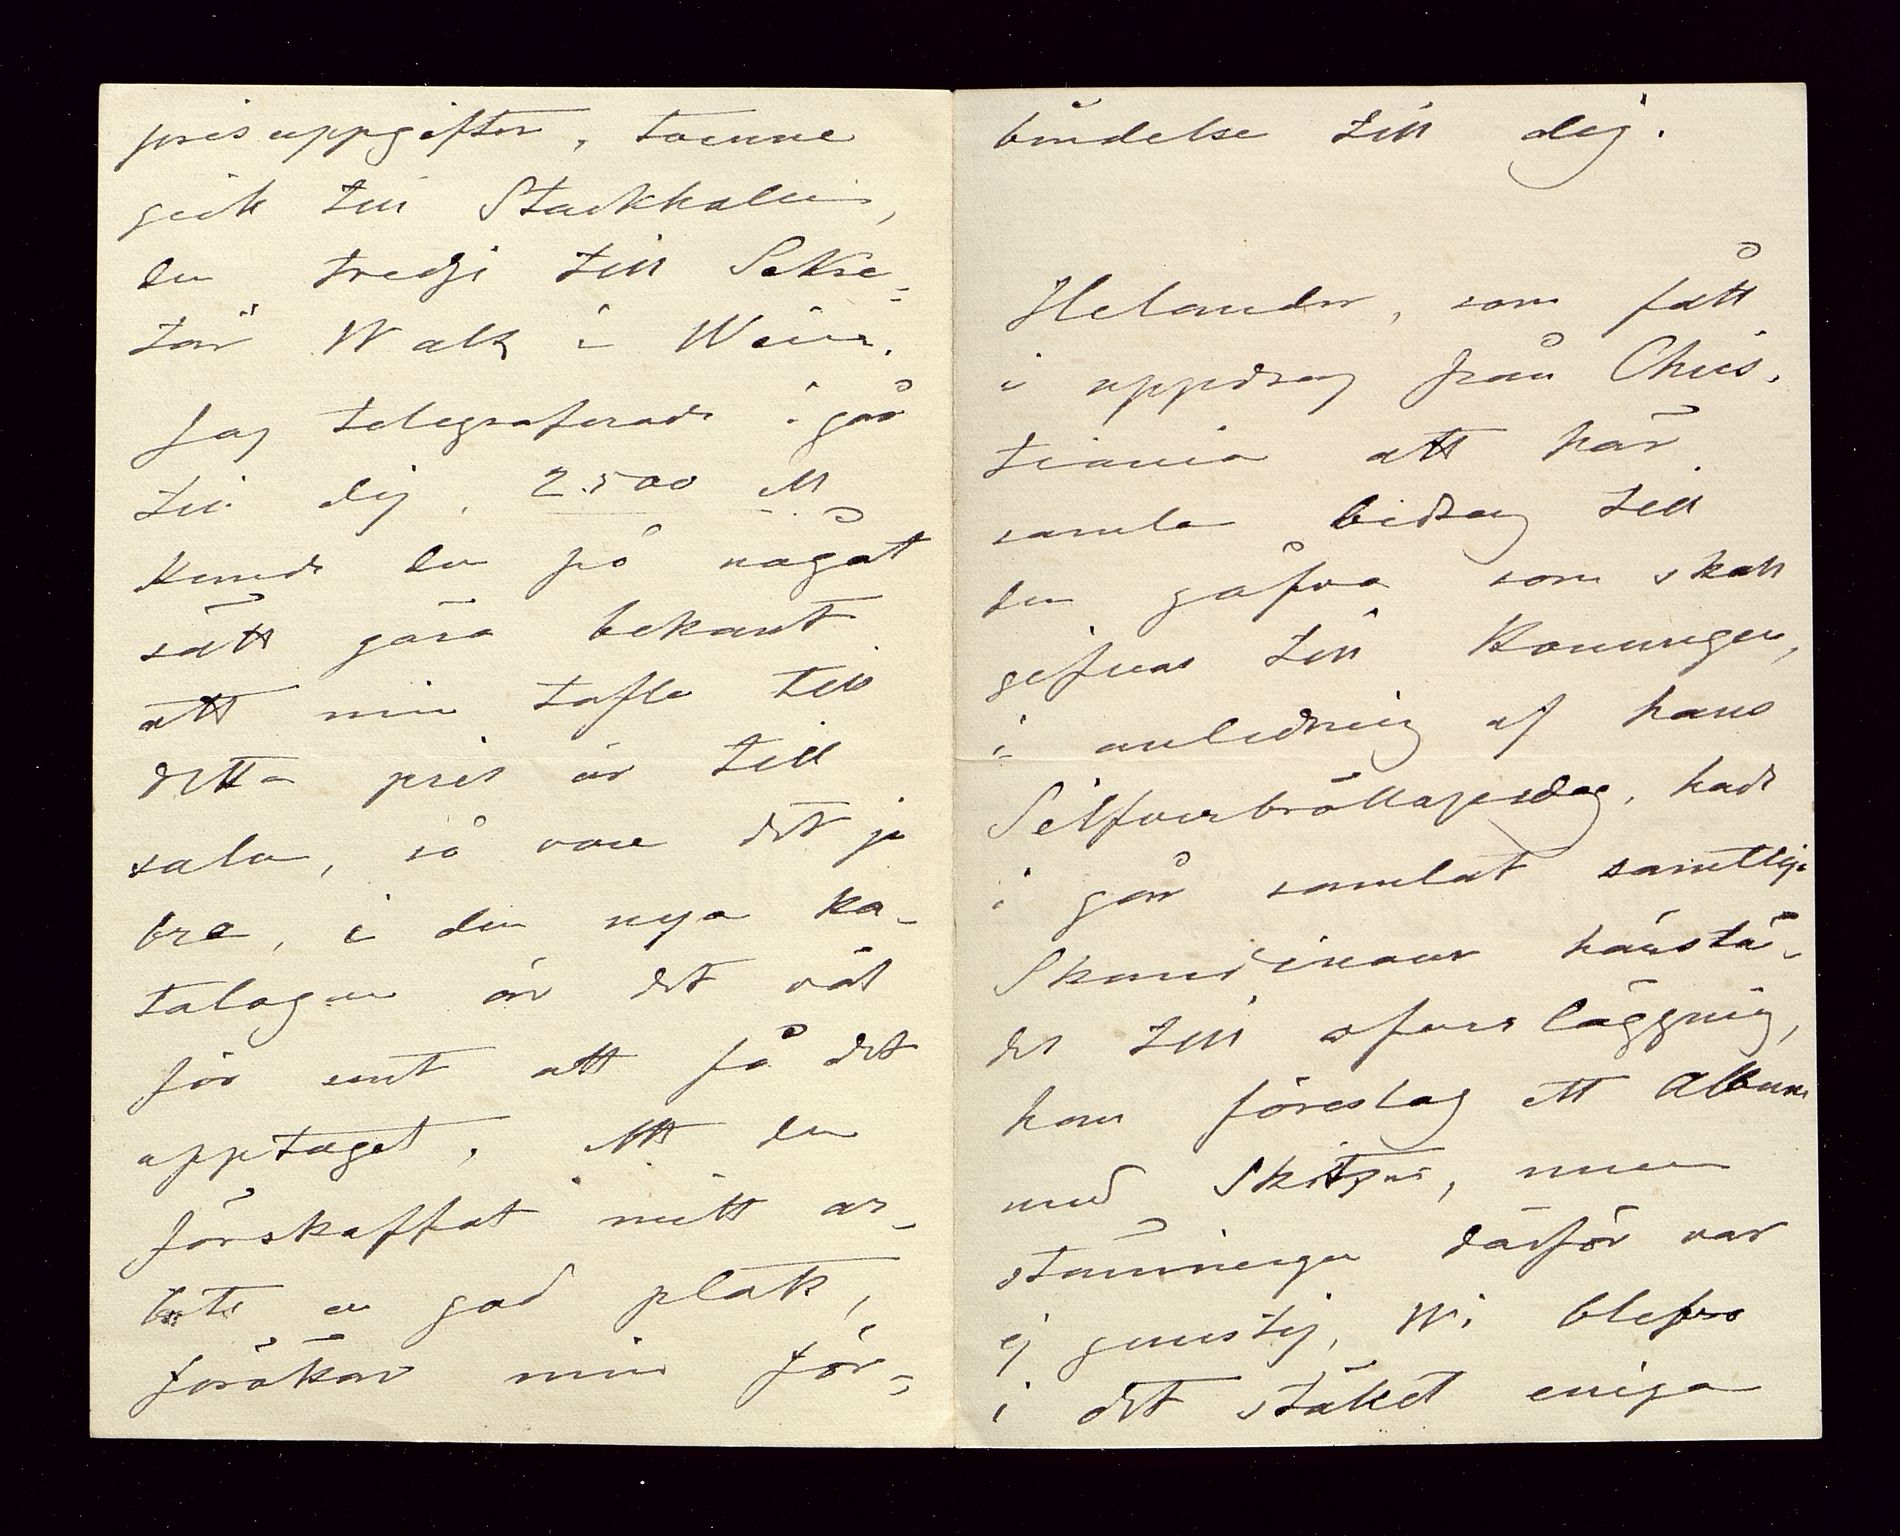 prisuppgifter,
gick till Stockholm,
den tredje till Sekre=
tär Walz i Wien.
Jag telegraferade i går
till dig, 2.500 M
Kunde du på något
sätt göra bekant
att min tafla till
detta pris är till
salu, så vore det ju
bra, i den nya ka-
talogen är det väl
för sent att få det
upptaget. Att du
förskaffat mitt ar-
bete en god plats,
förökar min för=
bindelse till dig.
Helander, som fått
i uppdrag från Chris-
tiania att här
samla bidrag till
den gåfva som skall
gifvas till Konungen,
i anledning af hans
Silfverbröllopsdag, hade
i går samlat samtliga
Skandinaver härstä-
des till öfverläggning,
han föreslog ett Album
med Skitzer, men
stämningen därför var
ej gunstig, Wi blefvo
i det stället eniga